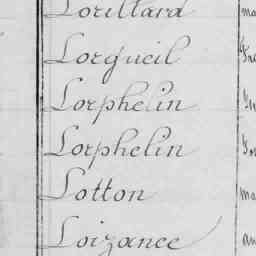 Lorillard
Lorgueil
Lorphelin
Lorphelin
Lotton
Loizance